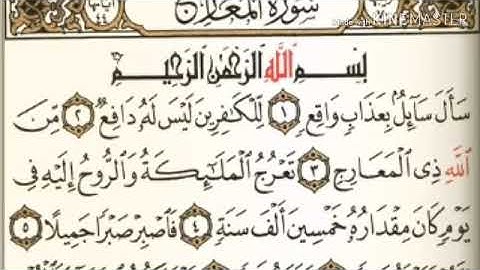 سُورَةُ المَعَارِجِ
آياتها ٤٤
Made with KINEMASTER
بِسْمِ ٱللَّهِ ٱلرَّحْمَٰنِ ٱلرَّحِيمِ
سَأَلَ سَآئِلُۢ بِعَذَابٍ وَاقِعٍ ۝١ لِّلْكَٰفِرِينَ لَيْسَ لَهُۥ دَافِعٌ ۝٢ مِّنَ
ٱللَّهِ ذِى ٱلْمَعَارِجِ ۝٣ تَعْرُجُ ٱلْمَلَٰٓئِكَةُ وَٱلرُّوحُ إِلَيْهِ فِى
يَوْمٍ كَانَ مِقْدَارُهُۥ خَمْسِينَ أَلْفَ سَنَةٍ ۝٤ فَٱصْبِرْ صَبْرًا جَمِيلًا ۝٥